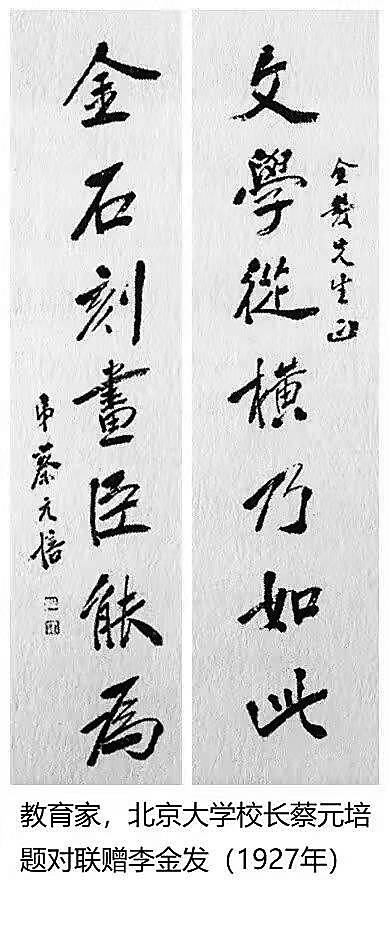 金發先生正
文學從橫乃如此
金石刻畫臣能為
弟蔡元培
教育家，北京大学校长蔡元培
题对联赠李金发（1927年）